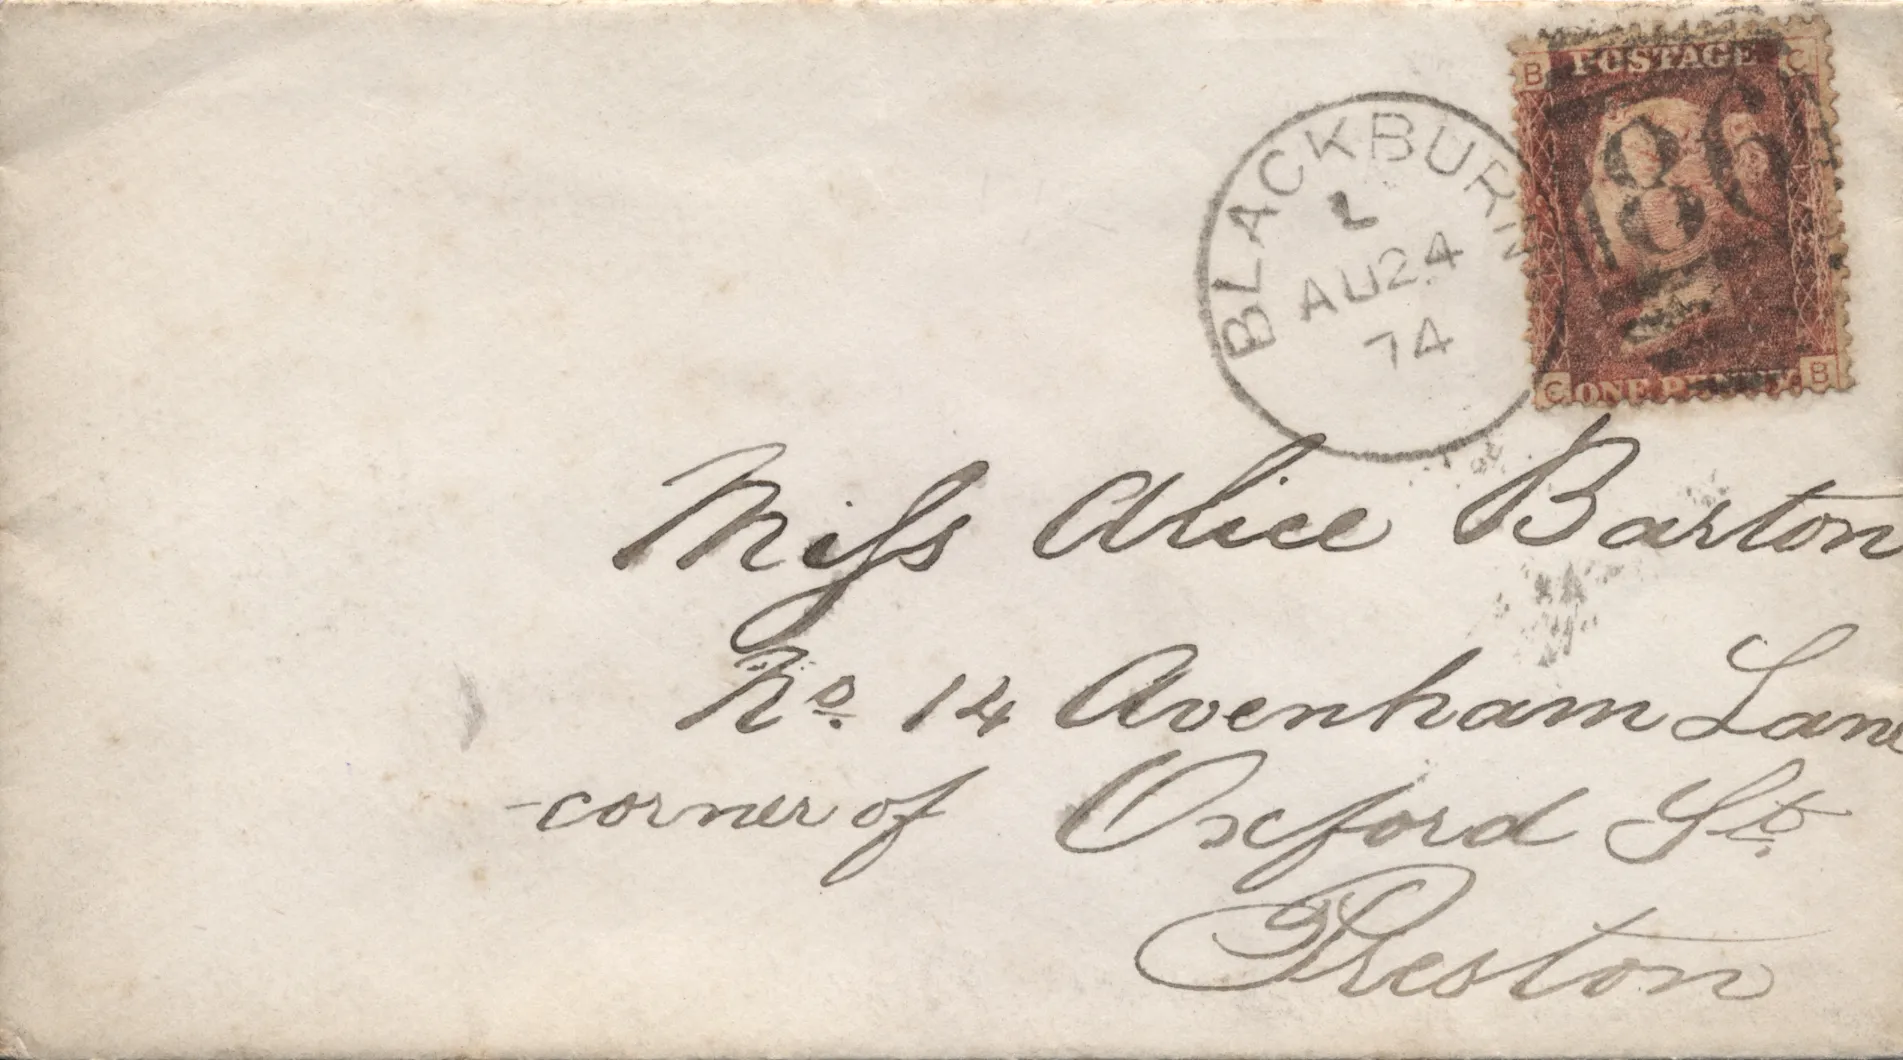 B POSTAGE C
186
C ONE PENNY B
BLACKBURN
L
AU24
74
Miſs Alice Barton
No. 14 Avenham Lane
-corner of Oxford St.
Preston